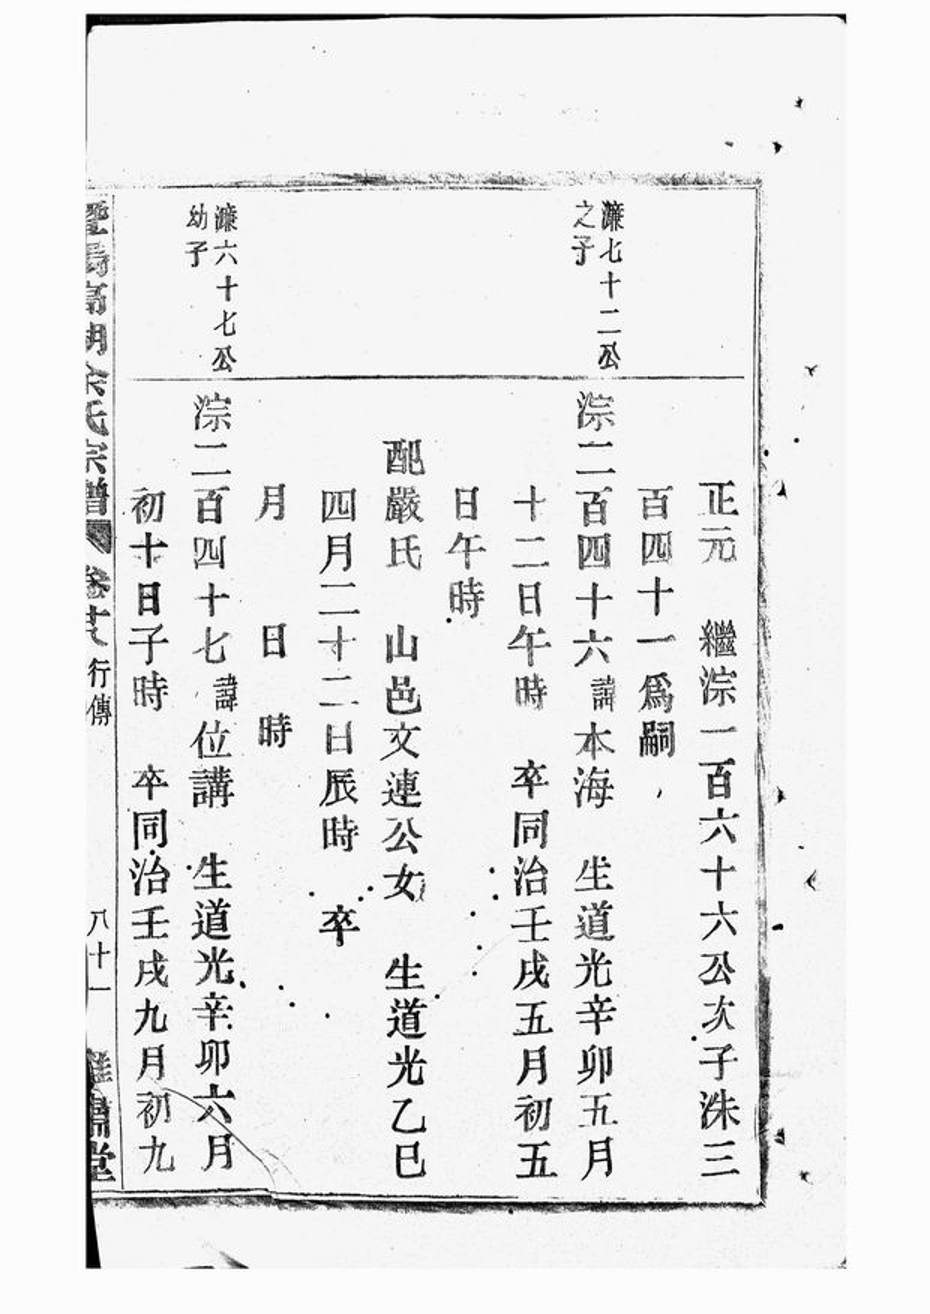 正元　繼淙一百六十六公次子洙三
百四十一爲嗣
濂七十二公
之子
淙二百四十六諱本海　生道光辛卯五月
十二日午時　卒同治壬戌五月初五
日午時
配嚴氏　山邑文連公女　生道光乙巳
四月二十二日辰時　卒
月　日　時
濂六十七公
幼子
淙二百四十七諱位講　生道光辛卯六月
初十日子時　卒同治壬戌九月初九
暨陽高湖余氏宗譜　卷廿八　行傳　八十一　肅堂